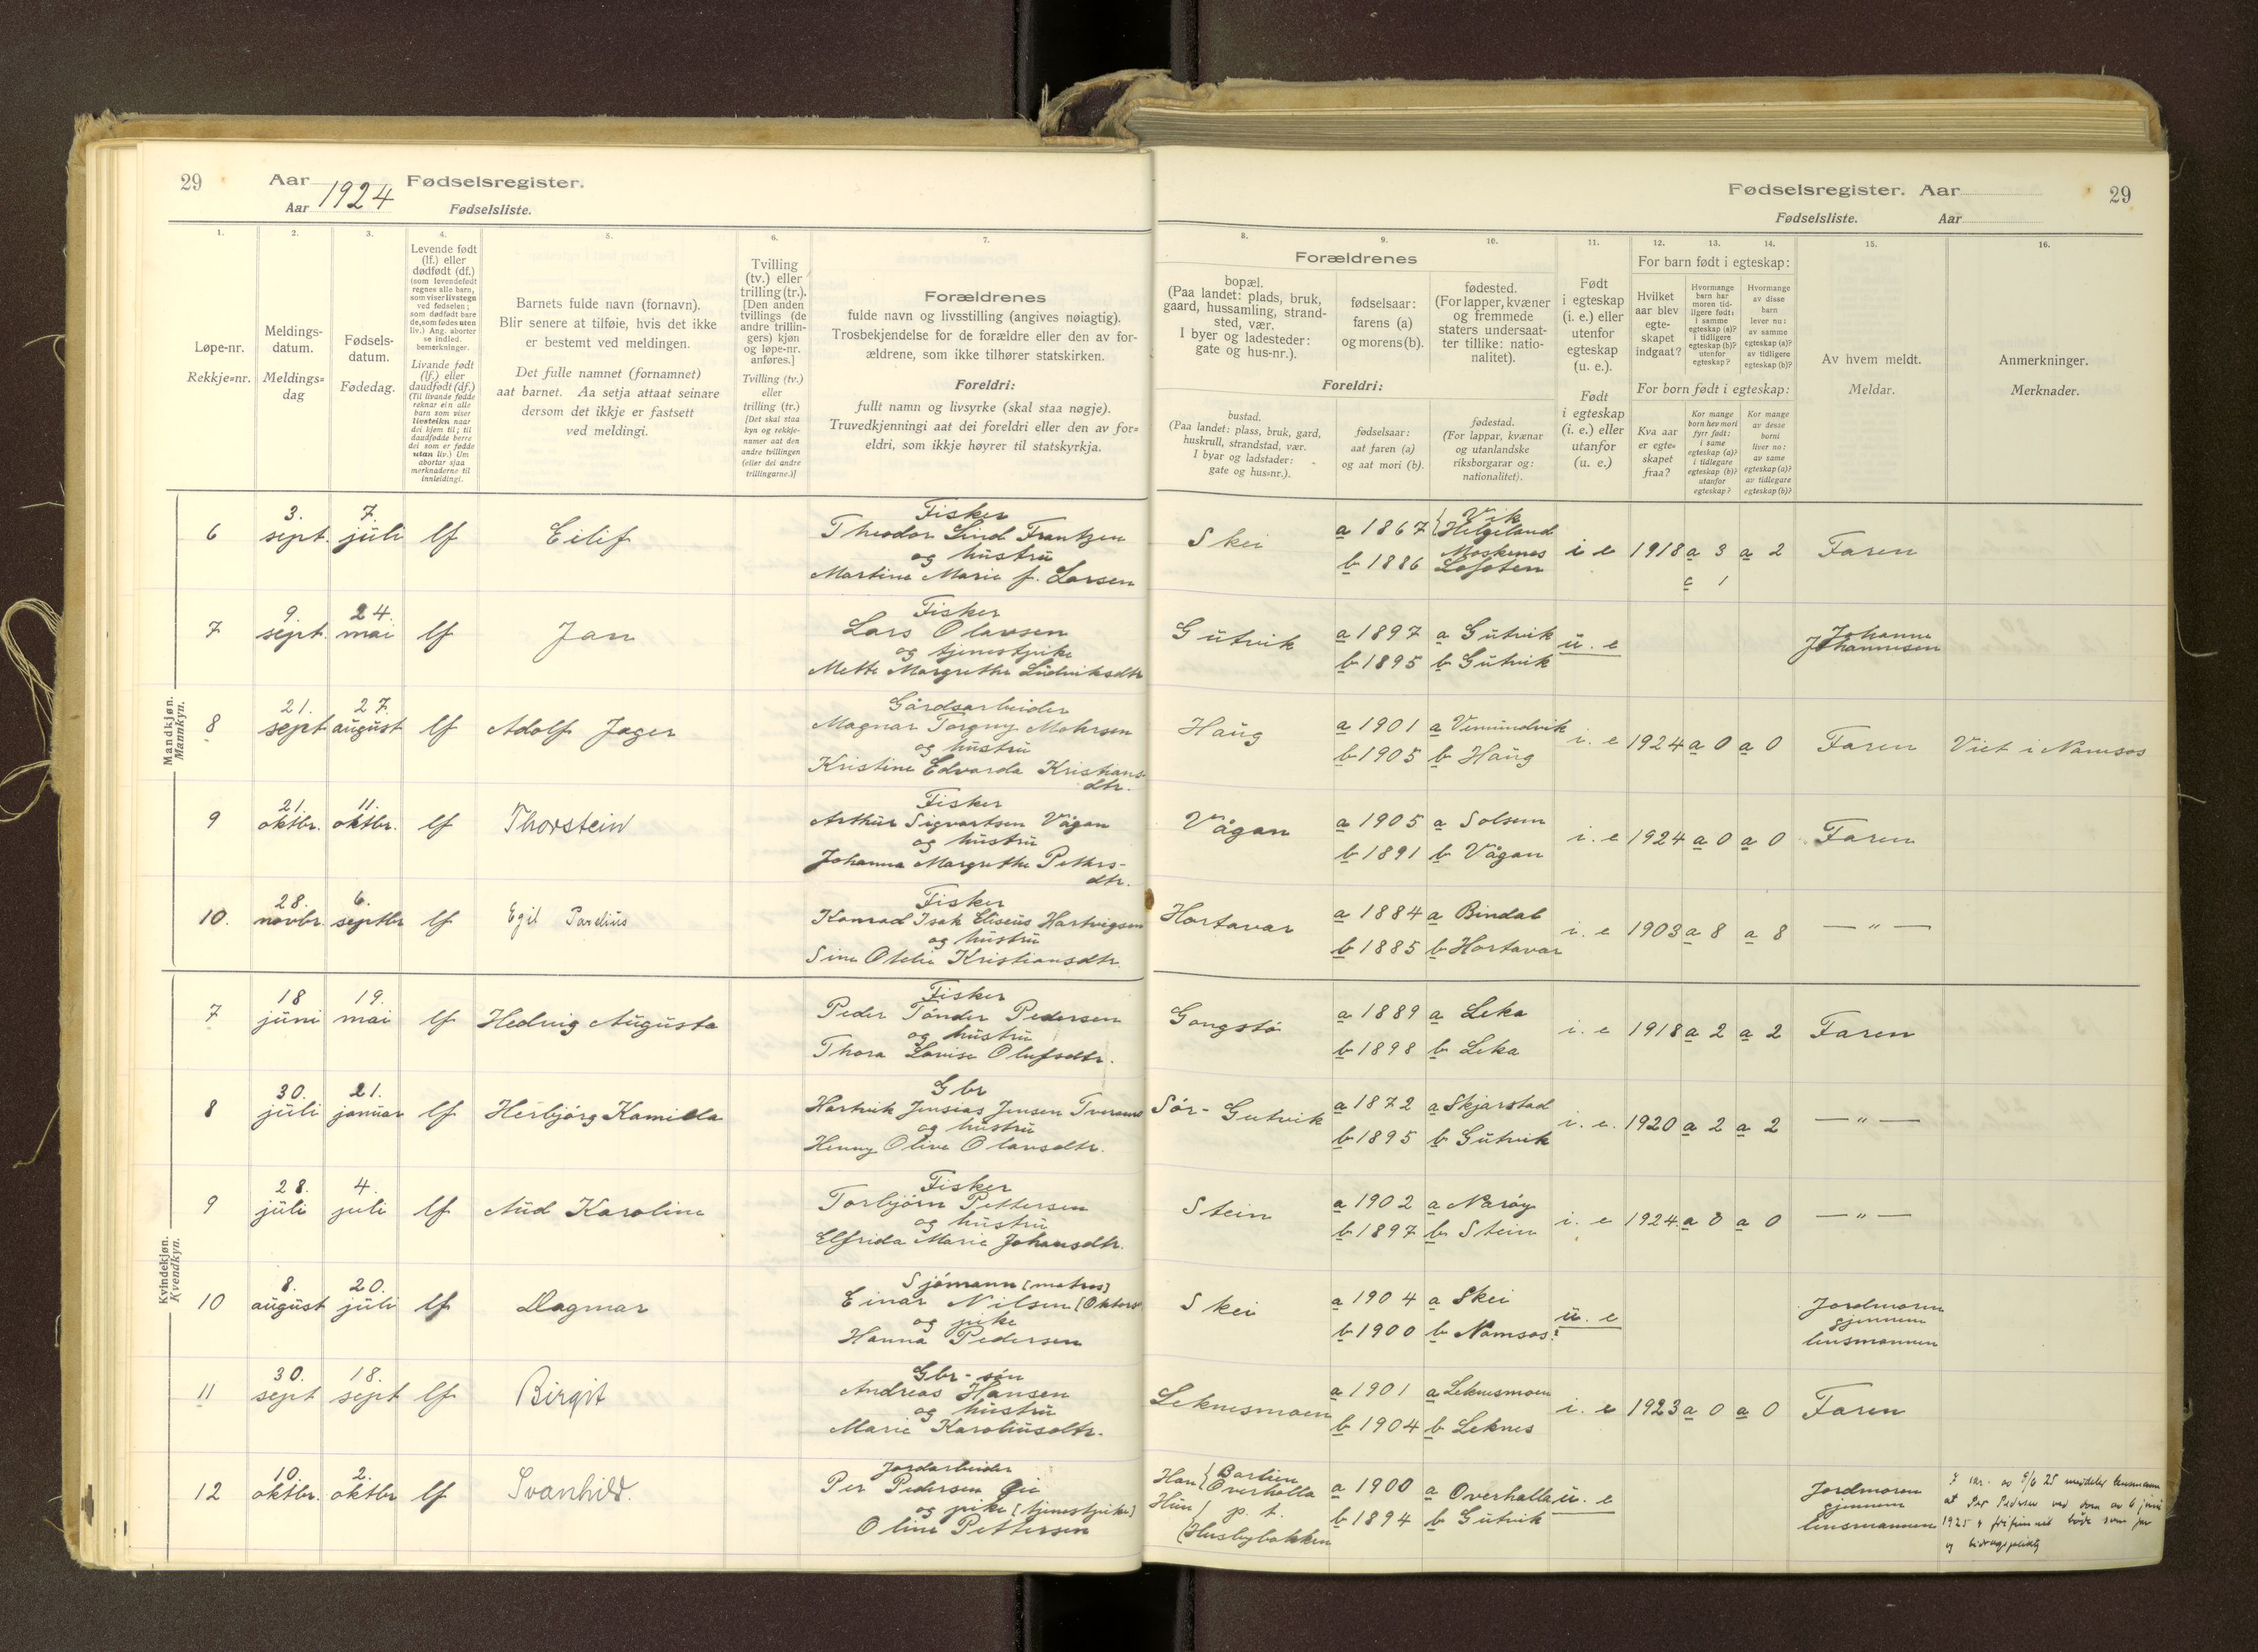 29 Aar 1924 Fødselsregister.
Aar Fødselsliste.
Fødselsregister. Aar 29
Fødselsliste. Aar
1. 2. 3. 4. 5. 6. 7. 8. 9. 10. 11. 12. 13. 14. 15. 16.
Løpe-nr.
Rekkje=nr.
Meldings-
datum.
Meldings=
dag
Fødsels-
datum.
Fødedag.
Levende født
(lf.) eller
dødfødt (df.)
(som levendefødt
regnes alle barn,
som viser livstegn
ved fødselen;
som dødfødt bare
de, som fødes uten
liv.) Ang. aborter
se indled.
bemerkninger.
Livande født
(lf.) eller
daudfødt (df.)
(Til livande fødde
reknar ein alle
barn som viser
livsteikn naar
dei kjem til; til
daudfødde berre
dei som er fødde
utan liv.) Um
abortar sjaa
merknaderne til
innleidingi.
Barnets fulde navn (fornavn).
Blir senere at tilføie, hvis det ikke
er bestemt ved meldingen.
Det fulle namnet (fornamnet)
aat barnet. Aa setja attaat seinare
dersom det ikkje er fastsett
ved meldingi.
Tvilling
(tv.) eller
trilling (tr.).
[Den anden
tvillings (de
andre trillin-
gers) kjøn
og løpe-nr.
anføres.]
Tvilling (tv.)
eller
trilling (tr.)
[Det skal staa
kyn og rekkje-
numer aat den
andre tvillingen
(eller dei andre
trillingarne.)]
Forældrenes
fulde navn og livsstilling (angives nøiagtig).
Trosbekjendelse for de forældre eller den av for-
ældrene, som ikke tilhører statskirken.
Foreldri:
fullt namn og livsyrke (skal staa nøgje).
Truvedkjenningi aat dei foreldri eller den av for=
eldri, som ikkje høyrer til statskyrkja.
Forældrenes
bopæl.
(Paa landet: plads, bruk,
gaard, hussamling, strand-
sted, vær.
I byer og ladesteder:
gate og hus-nr.).
fødselsaar:
farens (a)
og morens (b).
fødested.
(For lapper, kvæner
og fremmede
staters undersaat-
ter tillike: natio-
nalitet).
Foreldri:
bustad.
(Paa landet: plass, bruk, gard,
huskrull, strandstad, vær.
I byar og ladstader:
gate og hus=nr.).
fødselsaar:
aat faren (a)
og aat mori (b).
fødestad.
(For lappar, kvænar
og utanlandske
riksborgarar og:
nationalitet).
Født
i egteskap
(i. e.) eller
utenfor
egteskap
(u. e.).
Født
i egteskap
(i. e.) eller
utanfor
(u. e.)
For barn født i egteskap:
Hvilket
aar blev
egte-
skapet
indgaat?
Hvormange
barn har
moren tid-
ligere født:
i samme
egteskap (a)?
i tidligere
egteskap (b)?
utenfor
egteskap?
Hvormange
av disse
barn
lever nu:
av samme
egteskap (a)?
av tidligere
egteskap (b)?
For born født i egteskap:
Kva aar
er egte=
skapet
fraa?
Kor mange
born hev mori
fyrr født:
i same
egteskap (a)?
i tidlegare
egteskap (b)?
utanfor
egteskap?
Kor mange
av desse
borni
liver no:
av same
egteskap (a)?
av tidlegare
egteskap (b)?
Av hvem meldt.
Meldar.
Anmerkninger.
Merknader.
Mandkjøn.
Mannkyn.
6 3. sept. 7. juli lf Eilif
Fisker
Theodor Lind Frantzen
og hustru
Martine Marie f. Larsen
Skei a 1867 Vik Helgeland i e 1918 a 3 a 2 Faren
b 1886 Moskenes Lofoten c 1
7 9. sept. 24. mai lf Jan
Fisker
Lars Olavsen
og tjenestpike
Mette Margrethe Ludviksdtr
Gutvik a 1897 a Gutvik u. e Johanne Johannesen
b 1895 b Gutvik
8 21. sept 27. august lf Adolf Jager
Gårdsarbeider
Magnar Torgny Mohrsen
og hustru
Kristine Edvarda Kristians-
dtr.
Haug a 1901 a Vemundvik i. e 1924 a 0 a 0 Faren Viet i Namsos
b 1905 b Haug
9 21. oktbr. 11. oktbr. lf Thorstein
Fisker
Arthur Sigvartsen Vågan
og hustru
Johanna Margrethe Petters-
dtr.
Vågan a 1905 a Solsem i. e 1924 a 0 a 0 Faren
b 1891 b Vågan
10. 28. novbr. 6. septbr lf Egil Parelius
Fisker
Konrad Isak Eliseus Hartvigsen
og hustru
Sine Otelie Kristiansdtr.
Hortavar a 1884 a Bindal i. e 1903 a 8 a 8 — " —
b 1885 b Hortavar
Kvindekjøn.
Kvendkyn.
7 18 juni 19. mai lf Hedvig Augusta
Fisker
Peder Tønder Pedersen
og hustru
Thora Lovise Olufsdtr.
Gangstø a 1889 a Leka i. e 1918 a 2 a 2 Faren
b 1898 b Leka
8 30. juli 21. januar lf Herbjørg Kamilla
Gbr
Hartvik Jensias Jensen
og hustru
Henny Olive Olavsdtr.
Sør-Gutvik a 1872 a Skjærstad i. e. 1920 a 2 a 2 — " —
b 1895 b Gutvik
9 28. juli 4. juli lf Aud Karoline
Fisker
Torbjørn Pettersen
og hustru
Elfrida Marie Johansdtr.
Stein a 1902 a Nærøy i. e 1924. a 0 a 0 — " —
b 1897 b Stein
10 8. august 20. juli lf Dagmar
Sjømann [matros]
Einar Nilsen
og pike
Hanna Pedersen
Skei a 1904 a Skei u. e Jordmoren gjennem lensmannen
b 1900 b Namsos
11 30. sept 18. sept lf Birgit
Gbr-søn
Andreas Hansen
og hustru
Marie Karoliusdtr.
Leknesmoen a 1901 a Leknesmoen i. e 1923 a 0 a 0 Faren
b 1904 b Leknes
12 10. oktbr. 2. oktbr lf Svanhild.
Jordarbeider
Per Pedersen
og pike [tjenestpike]
Oline Pettersen
Han Overhalla a 1900 a Overhalla u. e Jordmoren gjennem lensmannen
Hun p. t. Husbybakken b 1894 b Gutvik
at Per Pedersen ved dom av 6 juni
1925 er frifunnet både som far
og bidragspliktig